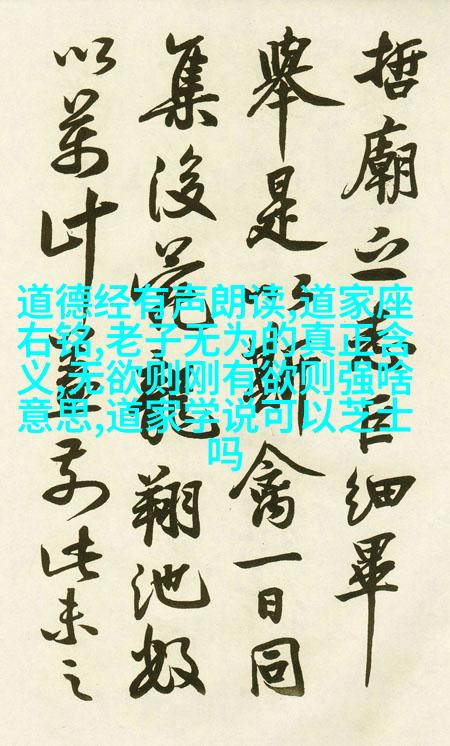 哲廟之巨細畢
舉是禽一日同
集後苑龍翔池奴
以萬計前此未之
道德经有声朗读,道家座
右铭,老子无为的真正含
义,无欲则刚有欲则强啥
意思,道家学说可以芝士
吗